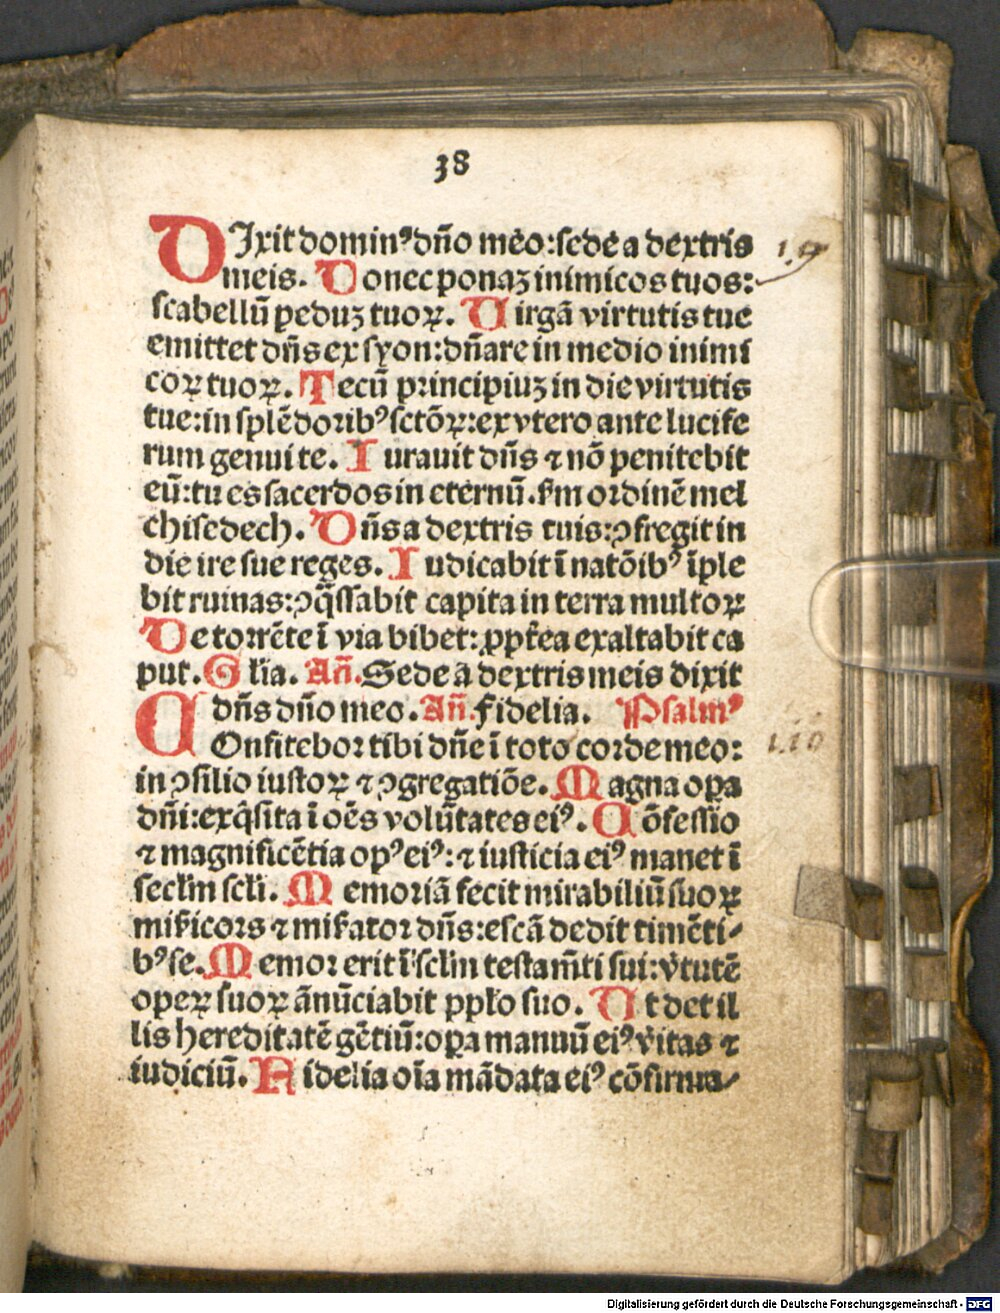 38
DIxit dominꝰ dn̄o mēo: sede a dextris
meis. Donec ponaꝫ inimicos tuos:
scabellū peduꝫ tuoꝝ. Uirgā virtutis tue
emittet dn̄s ex syon: dn̄are in medio inimi
coꝝ tuoꝝ. Tecū principiuꝫ in die virtutis
tue: in splēdoribꝰ sctōꝝ: ex vtero ante lucife
rum genui te. Iurauit dn̄s ⁊ nō penitebit
eū: tu es sacerdos in eternū. ẜm ordinē mel
chisedech. Dn̄s a dextris tuis: ꝯfregit in
die ire sue reges. Iudicabit ī natōibꝰ īple
bit ruinas: ꝯq̄ssabit capita in terra multoꝝ
De torrēte ī via bibet: ꝓpt̄ea exaltabit ca
put. Gl̄ia. An̄. Sede a dextris meis dixit
dn̄s dn̄o meo. An̄. Fidelia. Psalmꝰ
COnfitebor tibi dn̄e ī toto corde meo:
in ꝯsilio iustoꝝ ⁊ ꝯgregatiōe. Magna oꝑa
dn̄i: exq̄sita ī oēs volūtates eiꝰ. Cōfessio
⁊ magnificētia opꝰ eiꝰ: ⁊ iusticia eiꝰ manet ī
secl̄m scl̄i. Memoriā fecit mirabiliū suoꝝ
mis̄icors ⁊ mis̄ator dn̄s: escā dedit timēti⸗
bꝰ se. Memor erit ī scl̄m testam̄ti sui: v̄tutē
opeꝝ suoꝝ ānūciabit ppl̄o suo. Ut det il
lis hereditatē gētiū: oꝑa manuū eiꝰ v̄itas ⁊
iudiciū. Fidelia oīa mādata eiꝰ cōfirma⸗
Digitalisierung gefördert durch die Deutsche Forschungsgemeinschaft - DFG